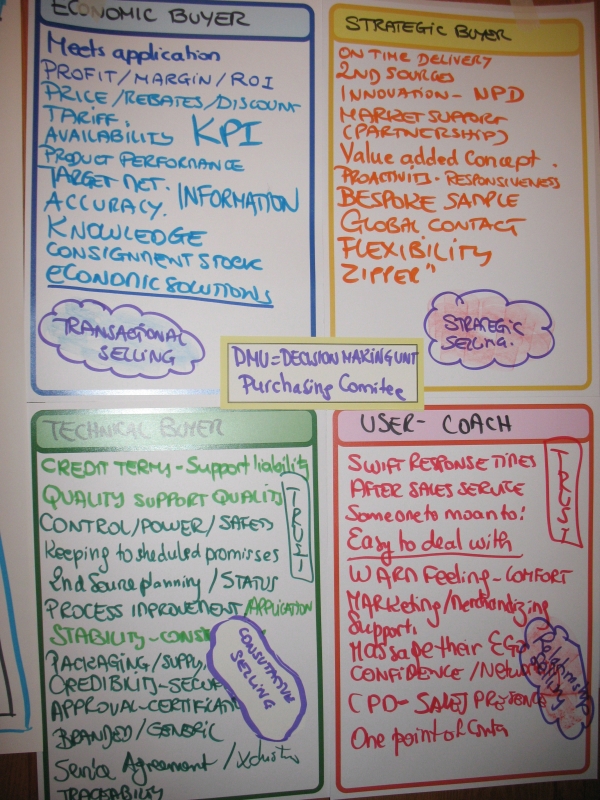 ECONOMIC BUYER
Meets application
PROFIT/MARGIN/ROI
PRICE/REBATES/DISCOUNT
TARIFF.
AVAILABILITY KPI
PRODUCT PERFORMANCE
TARGET NET.
ACCURACY. INFORMATION
KNOWLEDGE
CONSIGNMENT STOCK
ECONOMIC SOLUTIONS
TRANSACTIONAL
SELLING
STRATEGIC BUYER
ON TIME DELIVERY
2ND SOURCES
INNOVATION - NPD
MARKET SUPPORT
(PARTNERSHIP)
Value added Concept.
PROACTIVITY. RESPONSIVENESS
BESPOKE SAMPLE
GLOBAL CONTACT
FLEXIBILITY
ZIPPER"
STRATEGIC
SELLING.
DMU = DECISION MAKING UNIT
Purchasing Comitee
TECHNICAL BUYER
CREDIT TERMS - Support liability
QUALITY SUPPORT QUALITY
TRUST
CONTROL/POWER/SAFETY
Keeping to sheduled promises
2nd Source planning/STATUS
PROCESS IMPROVEMENT/APPLICATION
STABILITY-
PACKAGING/SUPPLY,
CREDIBILITY-
APPROVAL-
BRANDED/GENERIC
Service Agreement /
TRACEABILITY
CONSULTATIVE
SELLING
USER- COACH
TRUST
SWIFT RESPONSE TIMES
AFTER SALES SERVICE
Someone to moan to!
Easy to deal with
WARM Feeling - COMFORT
MARKETING/Merchandizing
Support.
Massage their EGO
CONFIDENCE/Network
CPD- SALES PRESENCE
One point of
Relationship
Selling